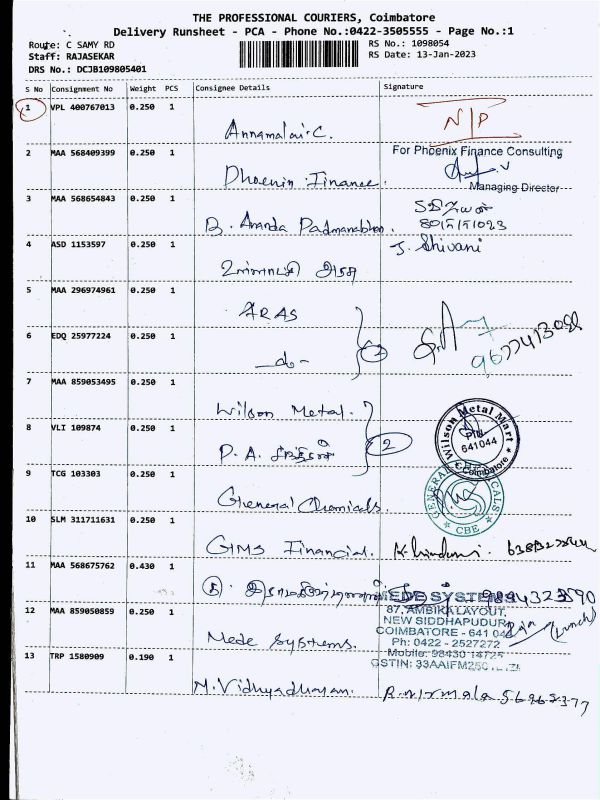 THE PROFESSIONAL COURIERS, Coimbatore
Delivery Runsheet - PCA - Phone No.:0422-3505555 - Page No.:1
Route: C SAMY RD
Staff: RAJASEKAR
DRS No.: DCJB109805401
RS No.: 1098054
RS Date: 13-Jan-2023
S No Consignment No Weight PCS Consignee Details Signature
1 VPL 400767013 0.250 1
Annamalai.C. N/P
2 MAA 568409399 0.250 1
For Phoenix Finance Consulting
Phoenix Finance.
Managing Director
3 MAA 568654843 0.250 1
B. Ananda Padmanabhan.
4 ASD 1153597 0.250 1
J. Shivani
5 MAA 296974961 0.250 1
ARAS
6 EDQ 25977224 0.250 1
-do-
7 MAA 859053495 0.250 1
Wilson Metal.
Wilson Metal Mart
PIN
641044
Coimbatore
8 VLI 109874 0.250 1
P. A. 2
9 TCG 103303 0.250 1
General Chemicals
GENERAL CHEMICALS
CBE
10 SLM 311711631 0.250 1
GIMS Financial.
11 MAA 568675762 0.430 1
MEDE SYSTEMS
87, AMBIKA LAYOUT,
NEW SIDDHAPUDUR
COIMBATORE - 641 044
Ph: 0422 - 2527272
Mobile: 98430 14725
(Lunch)
12 MAA 859050859 0.250 1
Mede Systems.
13 TRP 1580909 0.190 1
M. Vidhyadharan. R. Nirmala